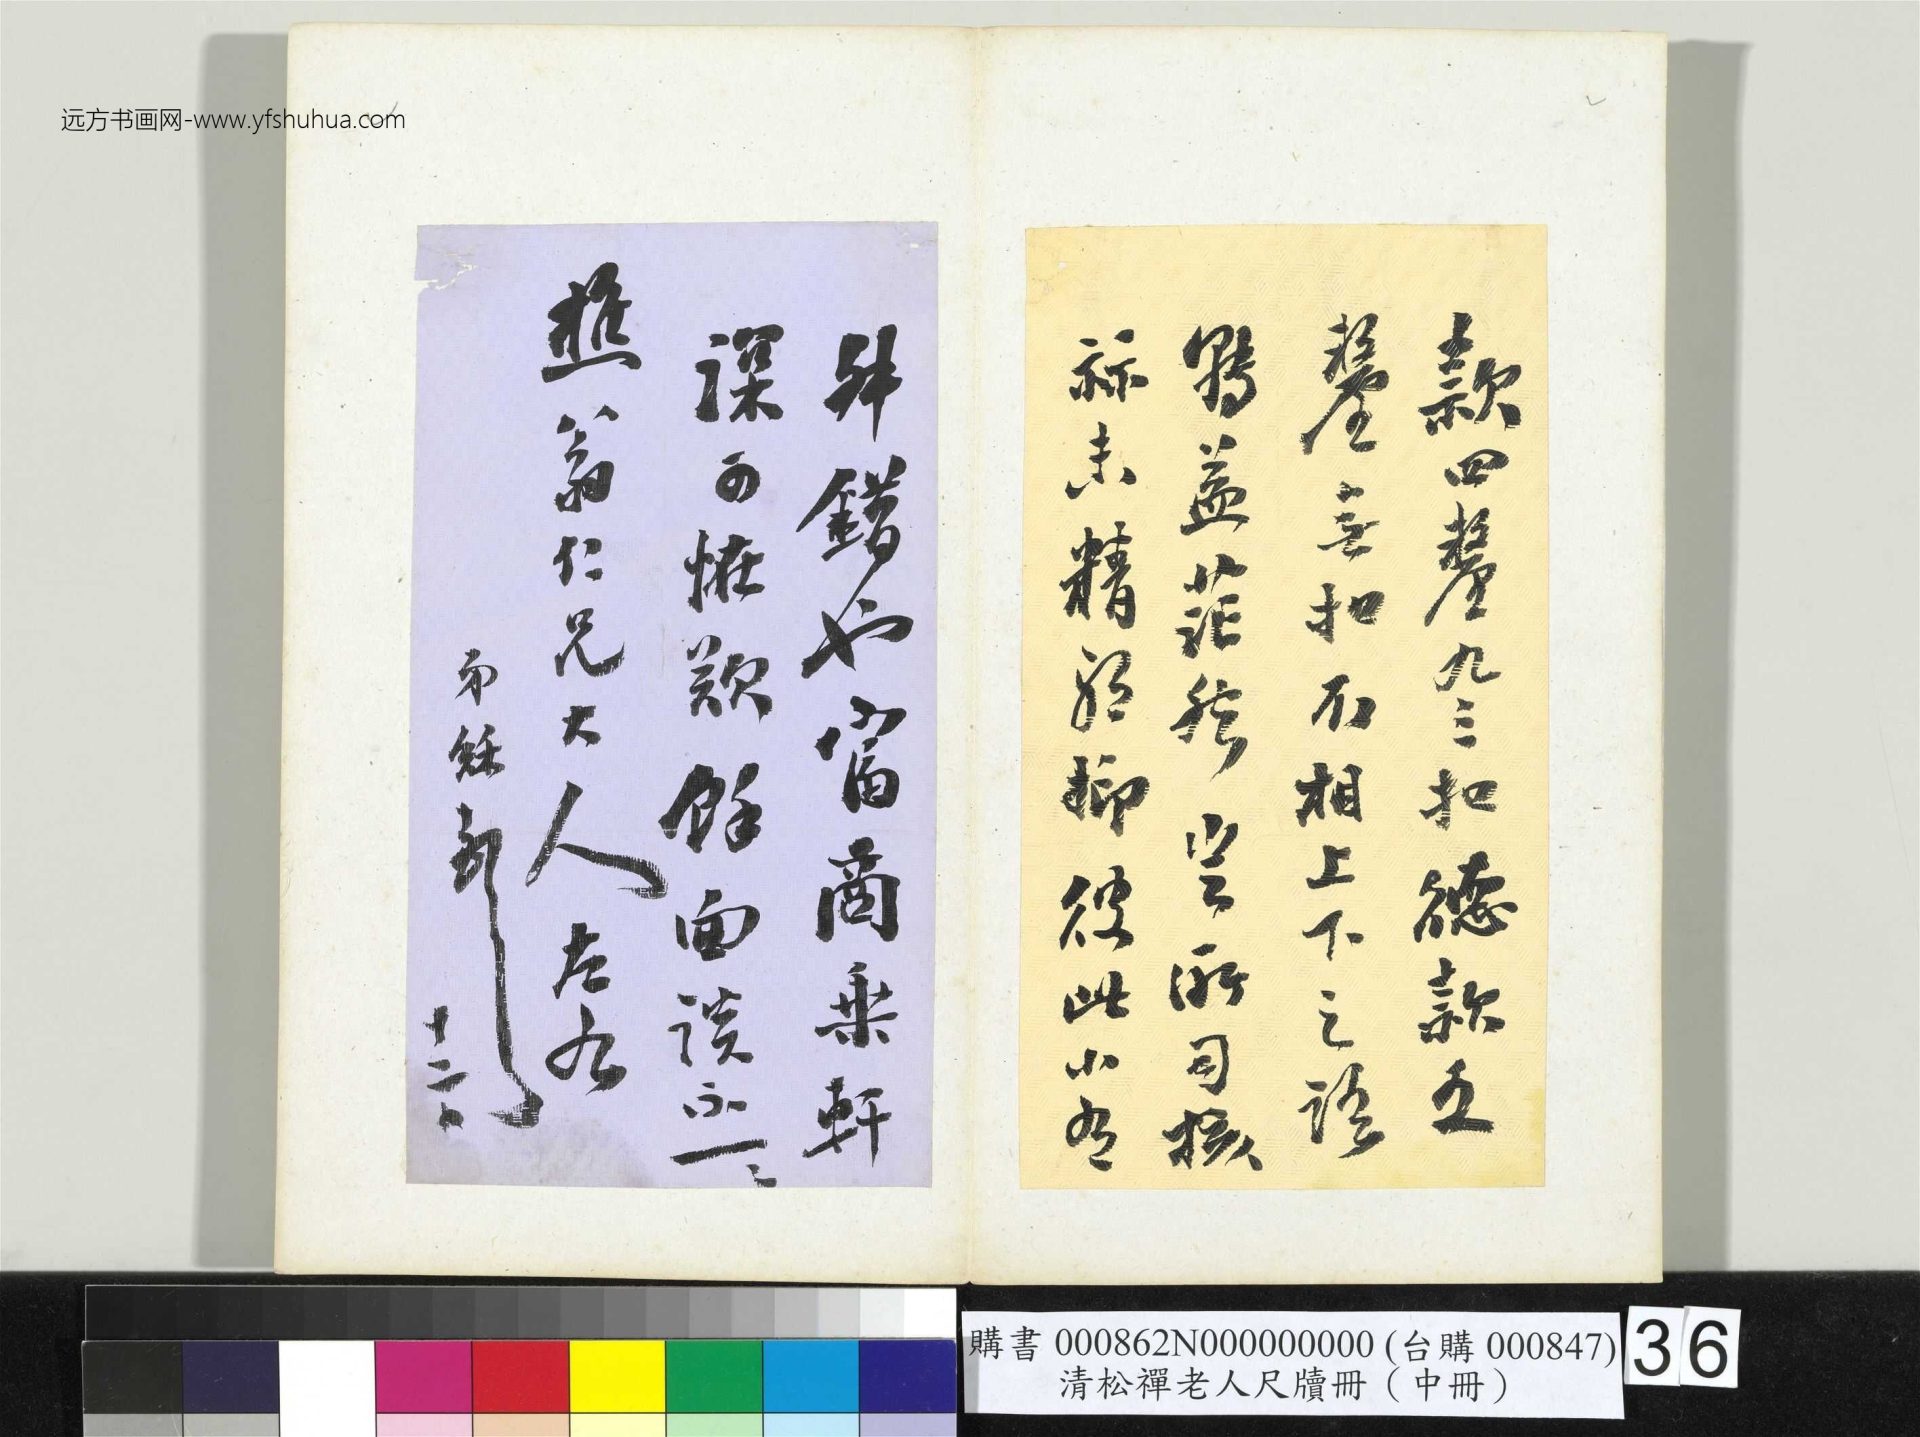 远方书画网-www.yfshuhua.com
款四釐九三扣德款五
釐無扣不相上下之語
益茫然豈所司核
未精耶抑彼此小有
舛錯也富商乘軒
深可恠歎餘面談不一一
樵翁仁兄大人左右
弟龢頓
十二日
購書 000862N000000000 (台購 000847)
清松禪老人尺牘冊（中冊）
36